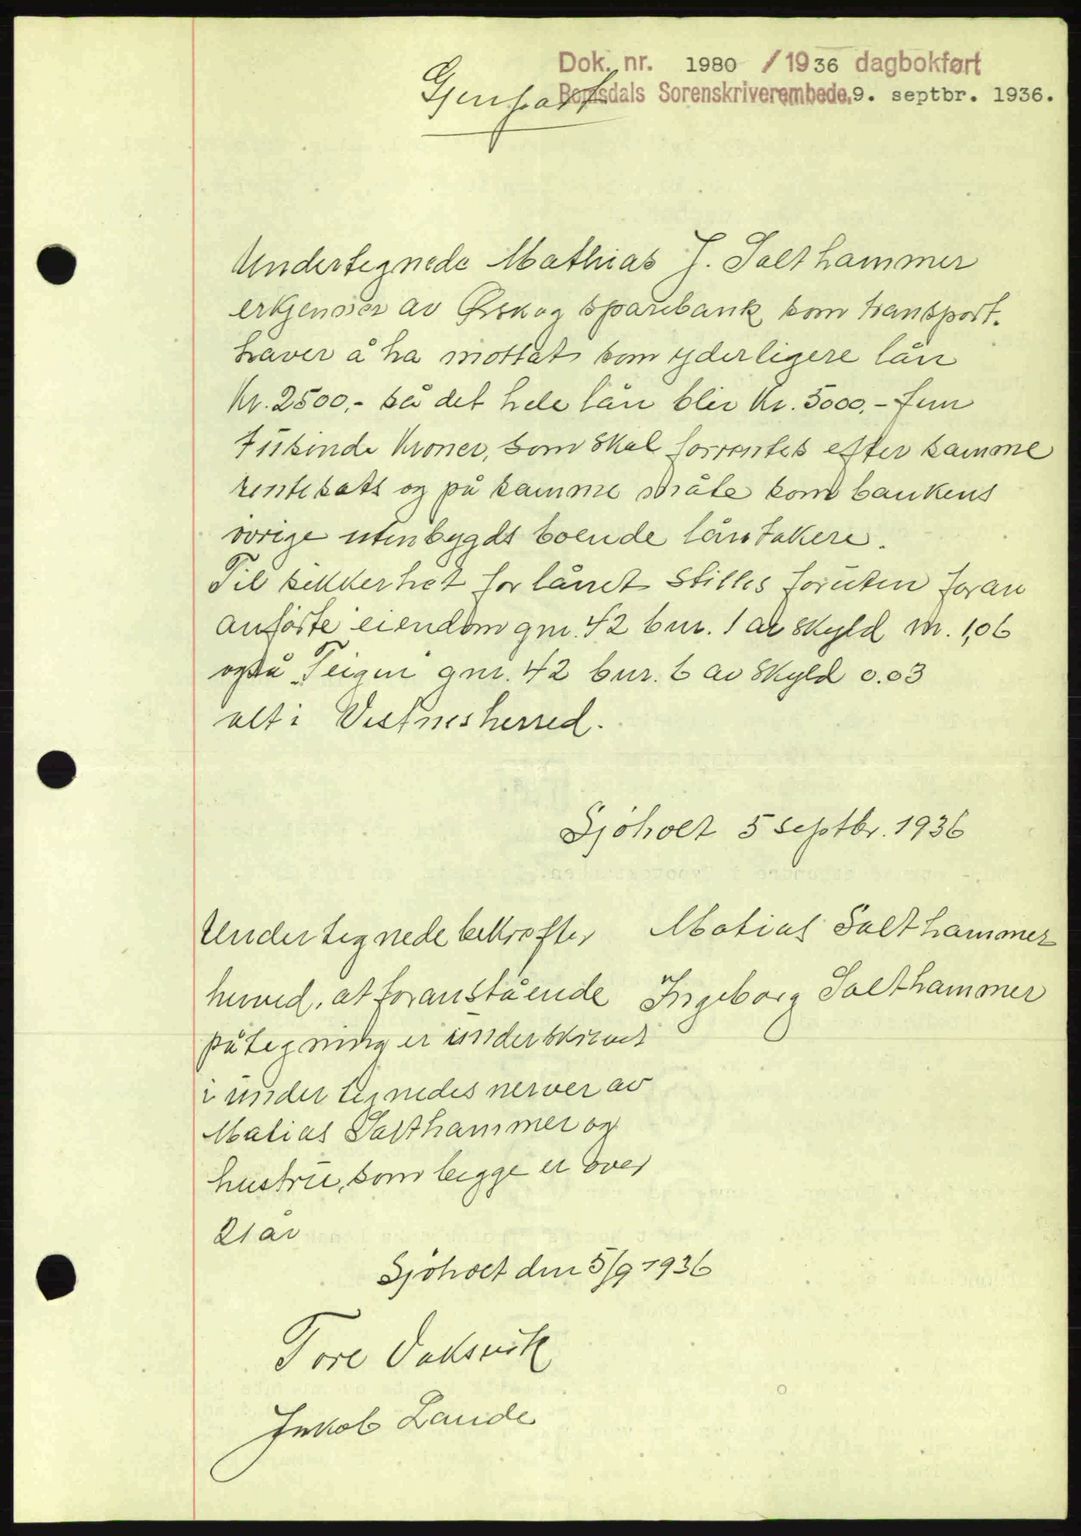 Dok. nr. 1980 /1936 dagbokført
Romsdals Sorenskriverembede. 9. septbr. 1936.
Gjenpart
Undertegnede Mathias J. Salthammer
erkjenner av Ørskog sparebank som transport-
haver å ha mottat som yderligere lån
Kr. 2500,- så det hele lån blir Kr. 5000,- fem
tusinde Kroner, som skal forrentes efter samme
rentesats og på samme måte som bankens
övrige utenbygds boende låntakere.
Til sikkerhet for lånet stilles foruten foran
anförte eiendom gnr. 42 bnr. 1 av skyld m. 1,06
også "Teigen" gnr. 42 bnr. 6 av skyld 0.03
alt i Vestnes herred.
Sjöholt 5 septbr. 1936
Matias Salthammer
Ingeborg Salthammer
Undertegnede bekræfter
herved, at foranstående
påtegning er underskrevet
i undertegnedes nerver av
Matias Salthammer og
hustru, som begge er over
21 år
Sjöholt den 5/9 1936
Tore Vaksvik
Jakob Lande